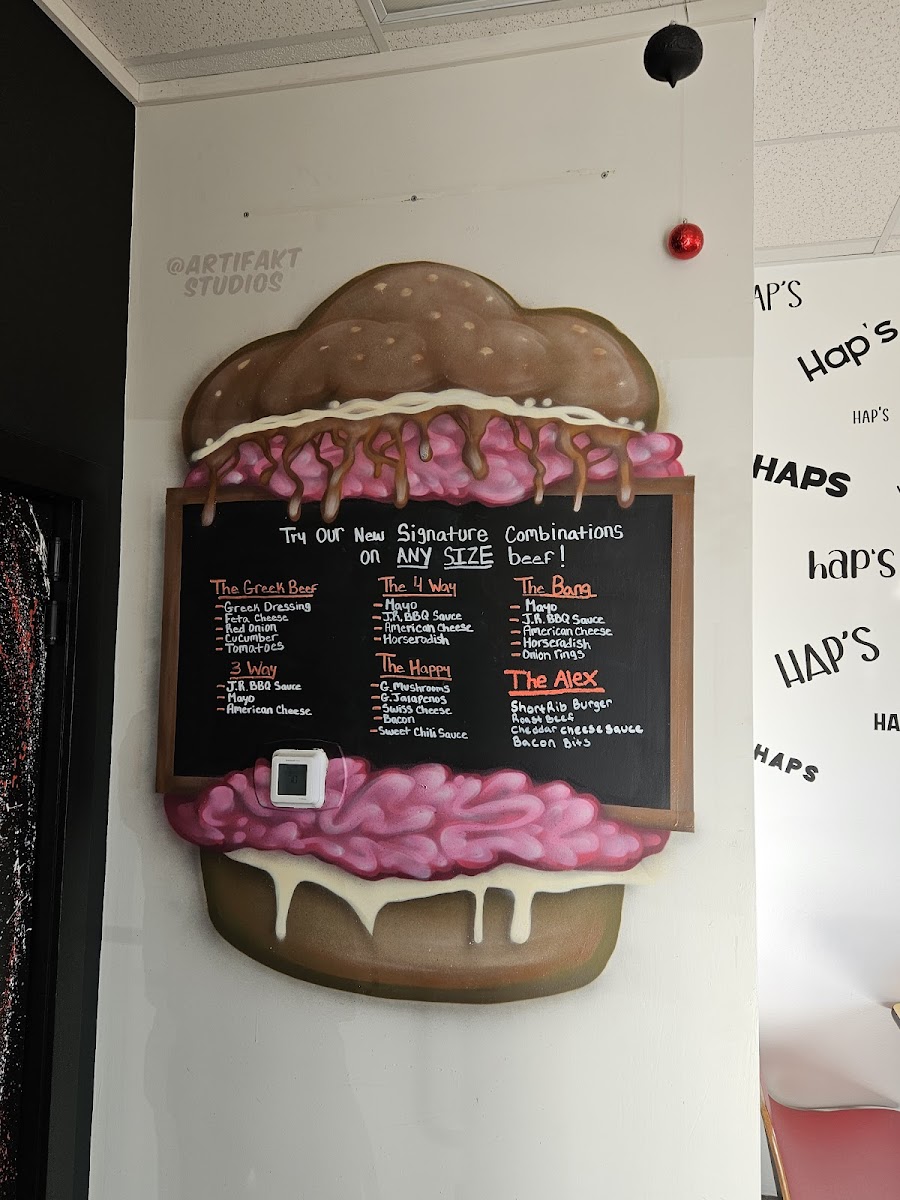 @ARTIFAKT
STUDIOS
Try Our New Signature Combinations
on ANY SIZE beef!
The Greek Beef
- Greek Dressing
- Feta Cheese
- Red Onion
- Cucumber
- Tomatoes
3 Way
- J.R. BBQ Sauce
- Mayo
- American Cheese
The 4 Way
- Mayo
- J.R. BBQ Sauce
- American Cheese
- Horseradish
The Happy
- G. Mushrooms
- G. Jalapenos
- Swiss Cheese
- Bacon
- Sweet Chili Sauce
The Bang
- Mayo
- J.R. BBQ Sauce
- American Cheese
- Horseradish
- Onion rings
The Alex
Short Rib Burger
Roast Beef
Cheddar cheese sauce
Bacon Bits
AP'S
Hap's
HAP'S
HAPS
hap's
HAP'S
HA
HAPS